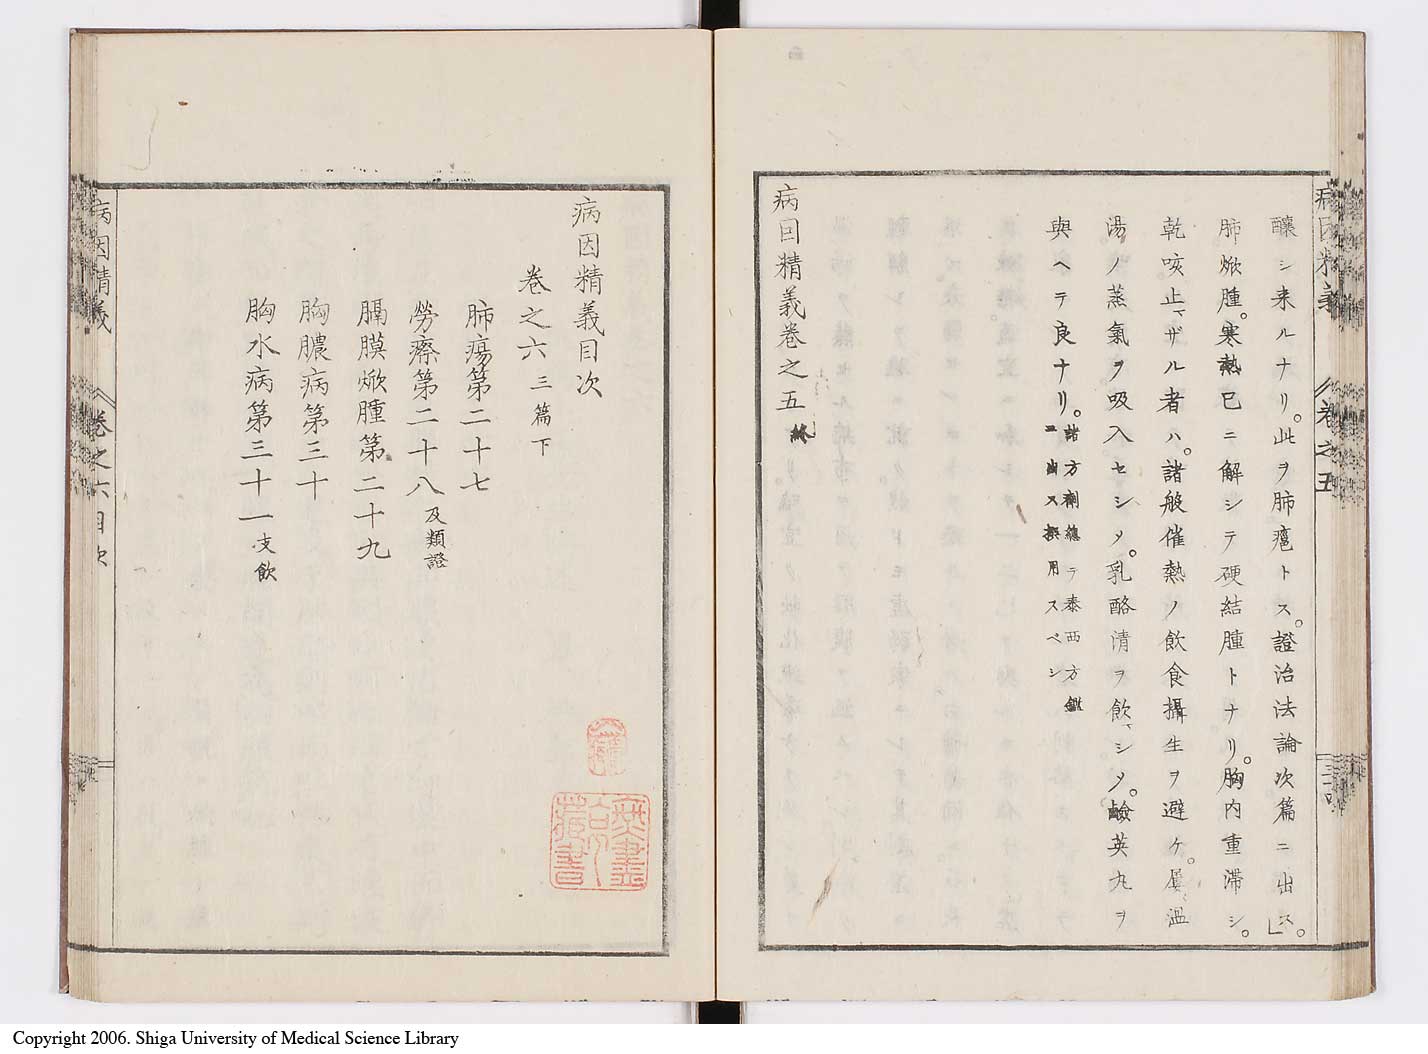 病因精義 卷之五
釀シ来ルナリ。此ヲ肺瘡トス。證治法論次篇ニ出ス。」
肺焮腫。寒熱已ニ解シテ硬結腫トナリ。胸内重滞シ。
乾咳止マザル者ハ。諸般催熱ノ飲食攝生ヲ避ケ。屢〻温
湯ノ蒸氣ヲ吸入セシメ。乳酪清ヲ飲マシメ。鹸英丸ヲ
與ヘテ良ナリ。諸方劑總テ泰西方鑑
ニ出ス撰用スベシ
病因精義卷之五 終
病因精義目次
卷之六 三篇下
肺瘍第二十七
勞瘵第二十八 及類證
膈膜焮腫第二十九
胸膿病第三十
胸水病第三十一 支飲
病因精義 卷之六目次
Copyright 2006. Shiga University of Medical Science Library